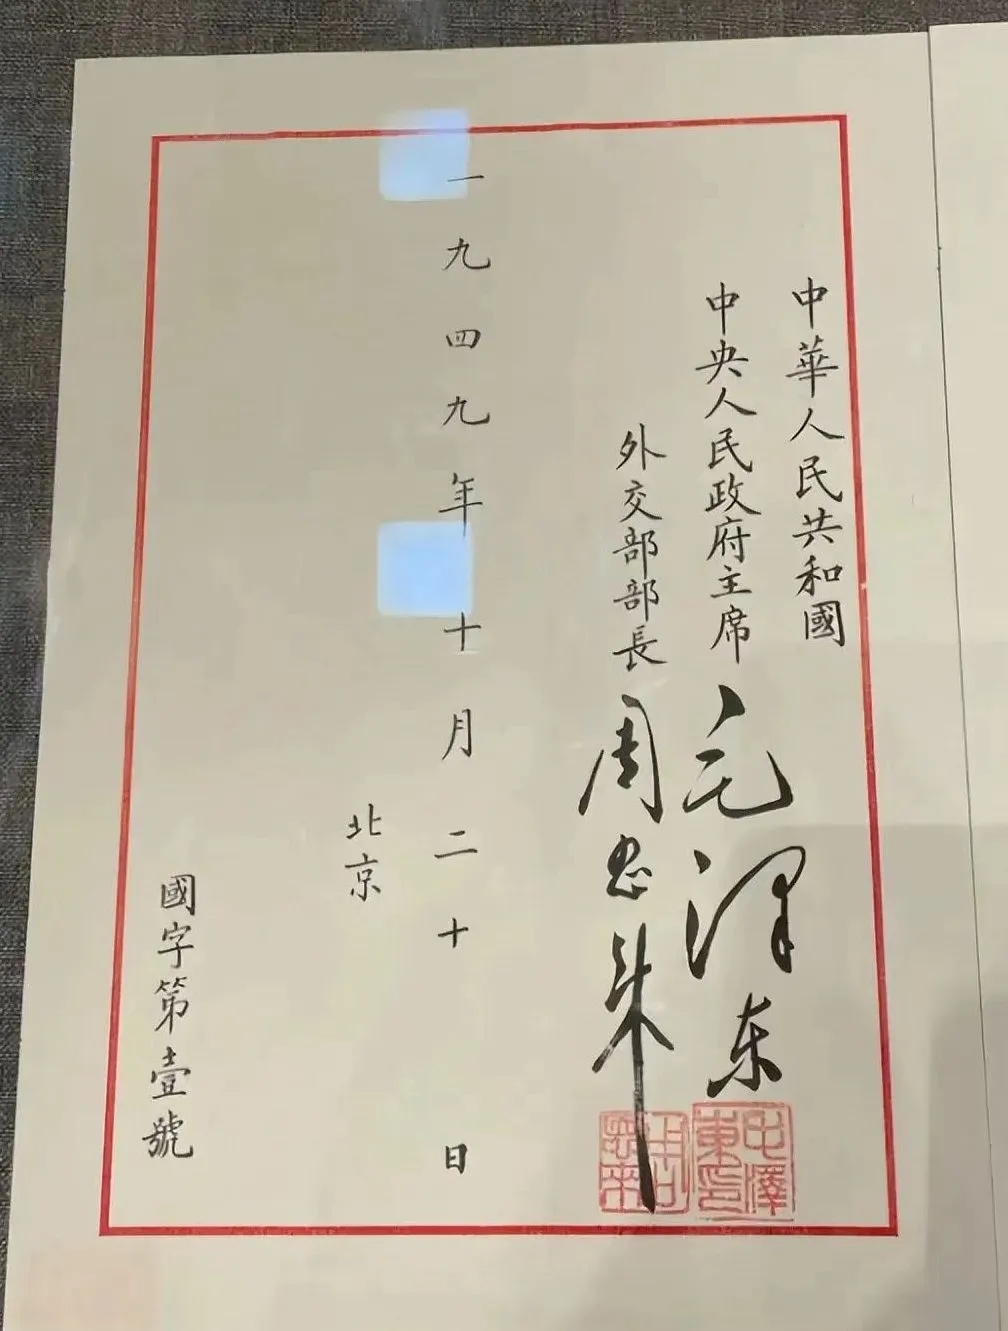 中華人民共和國
中央人民政府主席 毛澤东
外交部部長 周恩来
一九四九年 十月二十日
北京
國字第壹號
毛澤東印
周恩來